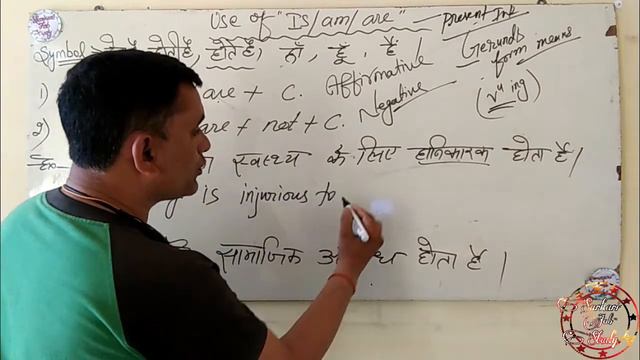 Use of "Is/am/are" – Present Ink
Symbol होता है, होती है, होते हैं, हों, हूँ, हैं
Gerunds
form means
(v⁴ ing)
1) are + C. Affirmative
2) are + not + C. Negative
Ex- स्वास्थ्य के लिए हानिकारक होता है।
is injurious to
सामाजिक होता है।
Sarkari
Job
Study